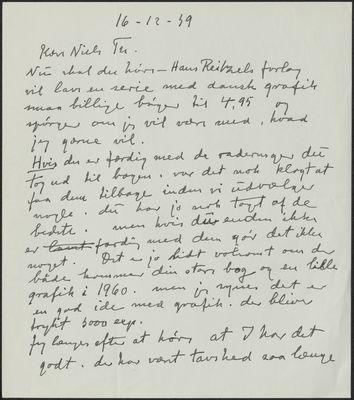 16-12-59
Kære Niels
Nu skal du høre – Hans Reitzels forlag
vil lave en serie med dansk grafik
smaa billige bøger til 4,95 og
spørger om jeg vil være med, hvad
jeg gerne vil.
Hvis du er færdig med de raderinger du
tog ud til bogen. var det nok klogt at
faa dem tilbage inden vi udvælger
nogle. du har jo nok taget af de
bedste. men hvis du enden ikke
er færdig med dem gør det ikke
noget. Det er jo lidt voldsomt om der
både kommer din store bog og en lille
grafik i 1960. men jeg synes det er
en god ide med grafik. der bliver
trykt 5000 exp.
Jeg længes efter at høre at I har det
godt. der har været tavshed saa længe